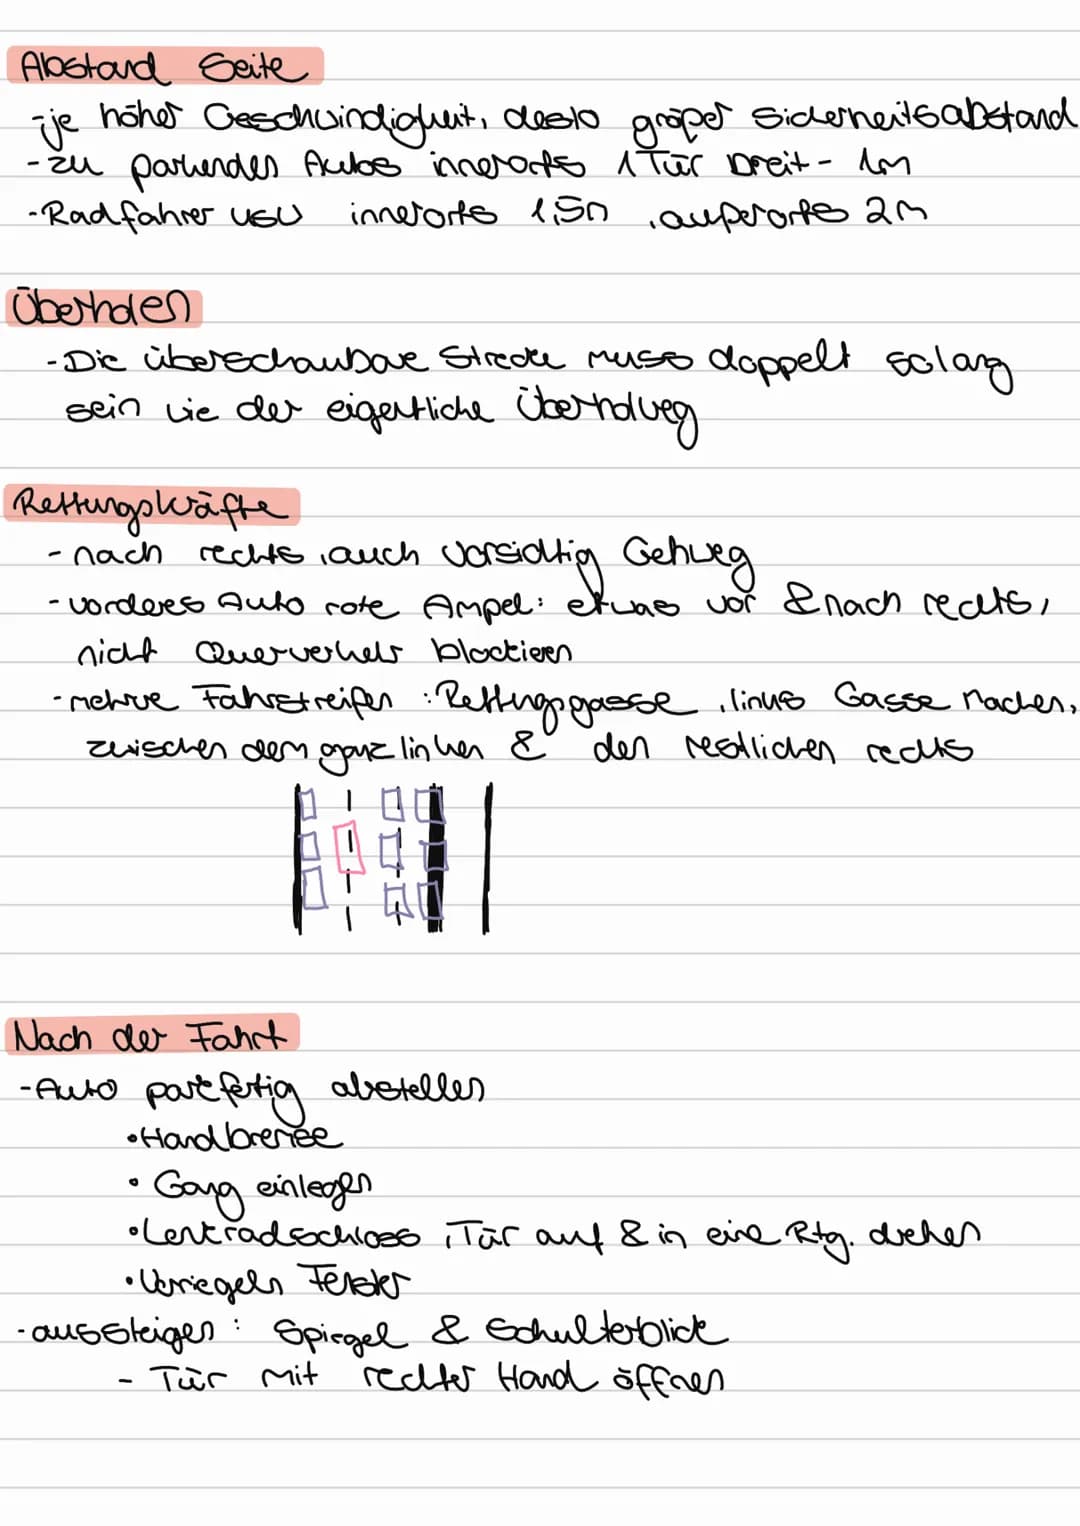 Abstand Seite
-je höher Geschwindigkeit, desto größer Sicherheitsabstand
-zu parkenden Autos innerorts 1 Tür breit - 1m
-Radfahrer usw innerorts 1,5m, außerorts 2m
Überholen
-Die überschaubare Strecke muss doppelt solang
sein wie der eigentliche Überholweg
Rettungskräfte
-nach rechts, auch vorsichtig Gehweg
-vorderes Auto rote Ampel: etwas vor & nach rechts,
nicht Querverkehr blockieren
-mehrere Fahrstreifen: Rettungsgasse, links Gasse machen,
zwischen dem ganz linken & den restlichen rechts
Nach der Fahrt
-Auto parkfertig abstellen
•Handbremse
•Gang einlegen
•Lenkradschloss, Tür auf & in eine Rtg. drehen
•Verriegeln Fenster
-aussteigen: Spiegel & Schulterblick
- Tür mit rechter Hand öffnen